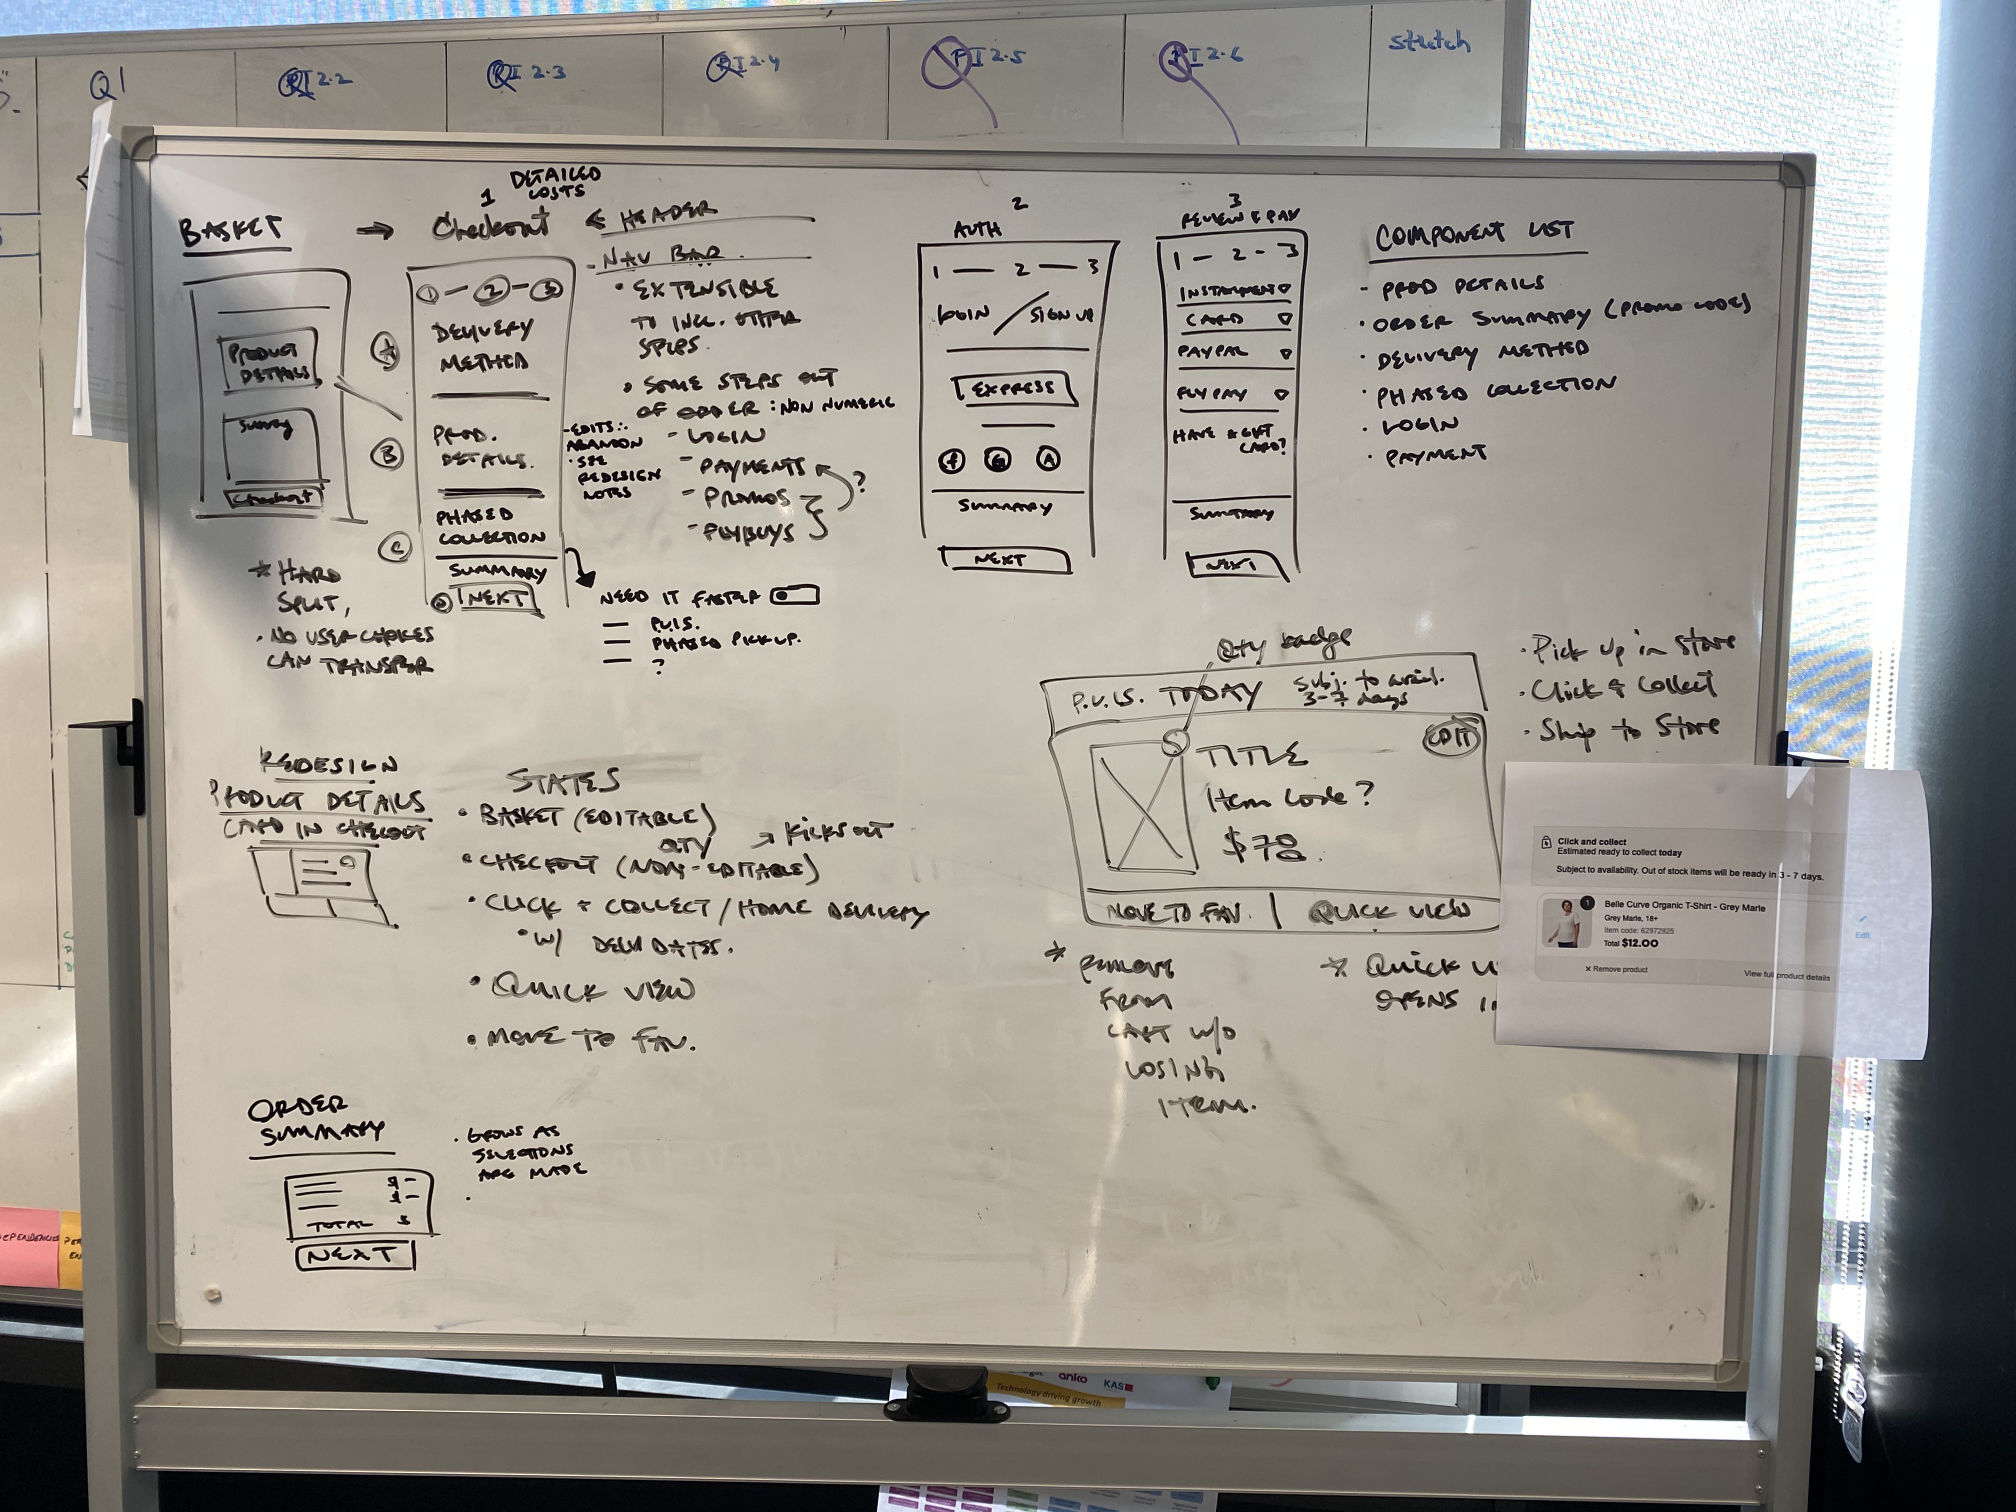 Q1
PI 2.2
PI 2.3
PI 2.4
PI 2.5
PI 2.6
Stretch
BASKET
PRODUCT
DETAILS
Checkout
* HARD
SPLIT,
• NO USER CHOICES
CAN TRANSFER
→
1
DETAILED
COSTS
Checkout
← HEADER
1 — 2 — 3
A
DELIVERY
METHOD
B
PROD.
DETAILS.
C
PHASED
COLLECTION
SUMMARY
NEXT
- NAV BAR
• EXTENSIBLE
TO INCL. OTHER
STEPS.
• SOME STEPS OUT
OF ORDER: NON NUMERIC
- LOGIN
- PAYMENTS
- PROMOS
- FLYBUYS
?
- EDITS:
ABANDON
• SEE
REDESIGN
NOTES
NEED IT FASTER
— P.U.I.S.
— PHASED PICK UP.
— ?
2
AUTH
1 — 2 — 3
LOGIN / SIGN UP
EXPRESS
f G A
SUMMARY
NEXT
3
REVIEW & PAY
1 - 2 - 3
INSTALMENT
CARD
PAYPAL
FLYPAY
HAVE A GIFT
CARD?
SUMMARY
NEXT
COMPONENT LIST
- PROD DETAILS
• ORDER SUMMARY (PROMO CODE)
• DELIVERY METHOD
• PHASED COLLECTION
• LOGIN
• PAYMENT
REDESIGN
PRODUCT DETAILS
CARD IN CHECKOUT
STATES
• BASKET (EDITABLE)
QTY → KICKS OUT
• CHECKOUT (NON-EDITABLE)
• CLICK + COLLECT / HOME DELIVERY
• W/ DELIV DATES.
• QUICK VIEW
• MOVE TO FAV.
Qty badge
P.U.I.S. TODAY
Subj. to avail.
3-7 days
5
EDIT
TITLE
Item Code?
$78.
MOVE TO FAV. | QUICK VIEW
* REMOVE
FROM
CART W/O
LOSING
ITEM.
* QUICK
OPENS
• Pick up in store
• Click & Collect
• Ship to Store
Click and collect
Estimated ready to collect today
Subject to availability. Out of stock items will be ready in 3 - 7 days.
1
Belle Curve Organic T-Shirt - Grey Marle
Grey Marle, 18+
Item code: 62972925
Total $12.00
Edit
× Remove product
View full product details
ORDER
SUMMARY
$ -
$ -
TOTAL $
NEXT
• GROWS AS
SELECTIONS
ARE MADE
anko
KAS
Technology driving growth